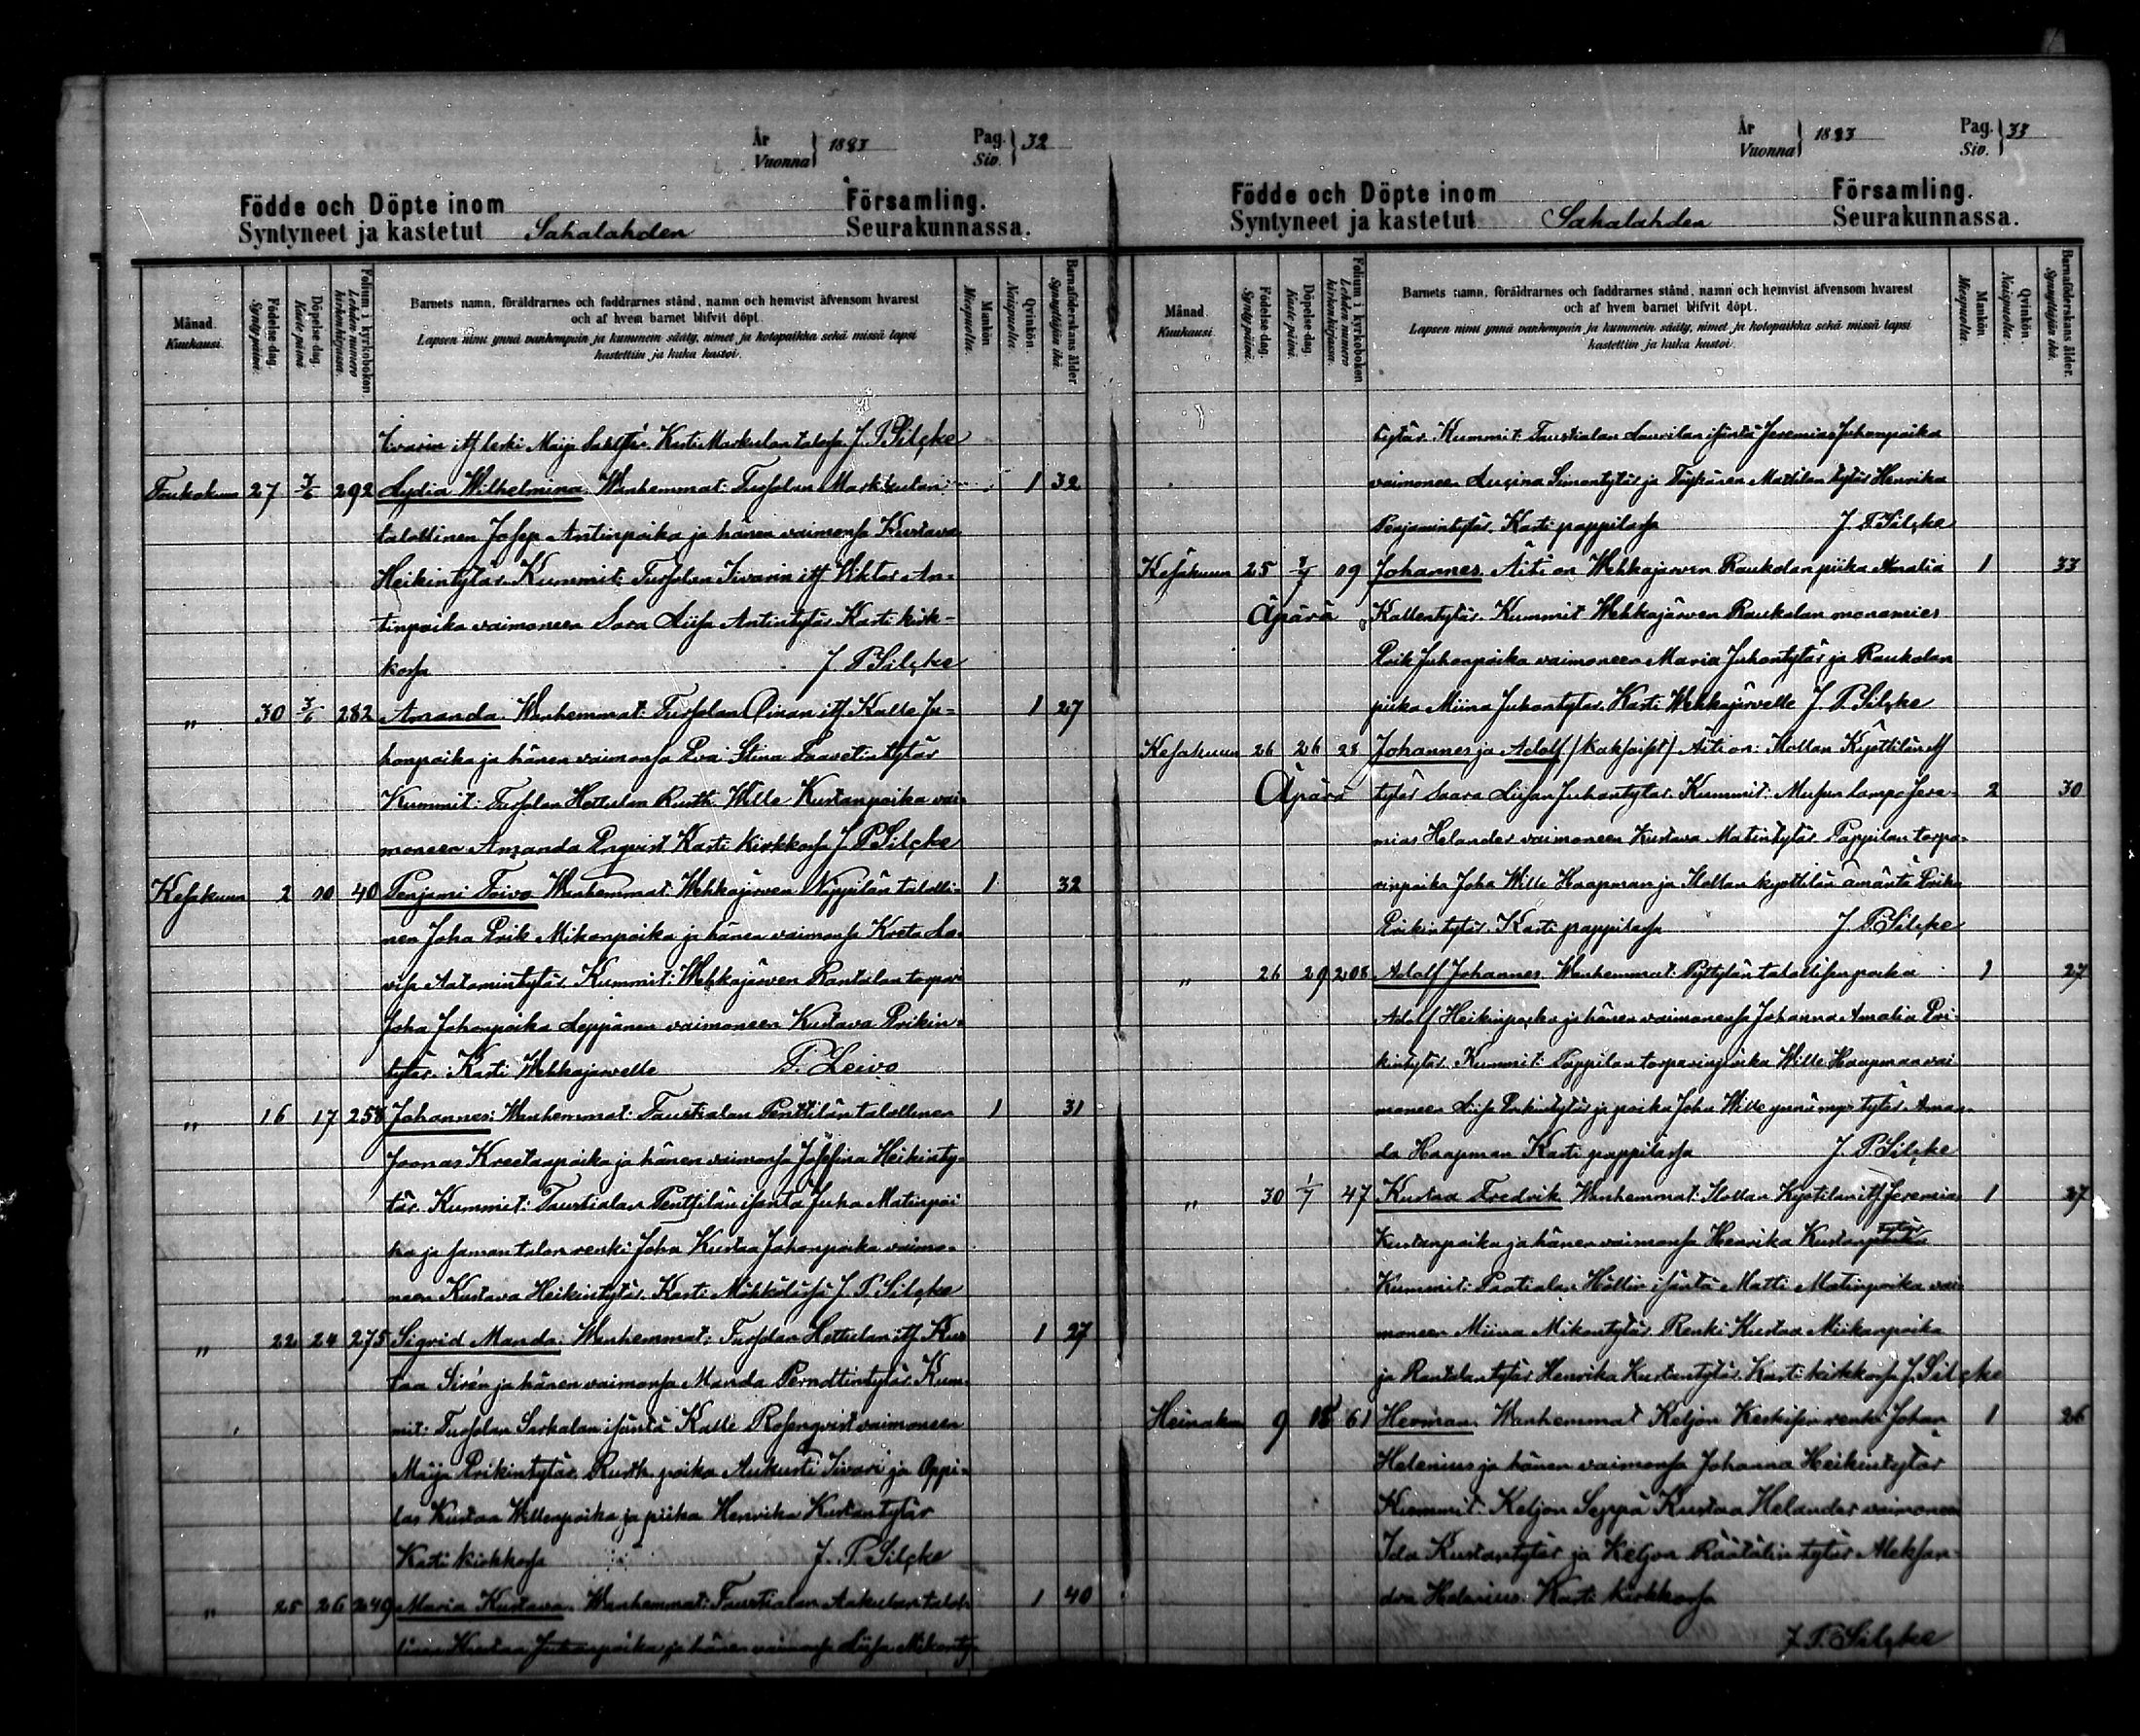 År
Vuonna } 1883
Pag.
Siv. } 32
Födde och Döpte inom Församling.
Syntyneet ja kastetut Sahalahden Seurakunnassa.
Månad. Kuukausi.
Födelse dag. Synty päivä.
Döpelse dag. Kaste päivä.
Folium i kyrkobokon Lehden numero kirkonkirjassa.
Barnets namn, föräldrarnes och faddrarnes stånd, namn och hemvist äfvensom hvarest
och af hvem barnet blifvit döpt.
Lapsen nimi ynnä vanhempain ja kummein sääty, nimet ja kotopaikka sekä missä lapsi
kastettiin ja kuka kastoi.
Mankön Miespuolia.
Qvinkön. Naispuolia.
Barnaföderskans ålder Synnyttäjän ikä.
Iivarin itf leski Maija Kasti Markulan talossa J. P. Silçke
Toukokuu 27 3/6 292 Lydia Wilhelmina Wanhemmat: Tursolan Markkulan 1 32
talollinen Josep Antinpoika ja hänen vaimonsa Kustava
Heikintytär. Kummit: Tursolan Iivarin itf Wiktor An-
tinpoika vaimoneen Sara Liisa Antintytär Kasti kirk-
kossa J. P. Silçke
" 30 3/6 282 Amanda Wanhemmat: Tursolan itf Kalle Ju-
honpoika ja hänen vaimonsa Eva Stina Taavetintytär 1 27
Kummit: Tursolan Hottulan Rusth. Wille Kustanpoika vai-
moneen Amanda Enqvist Kasti Kirkkossa J. P. Silçke
Kesäkuun 2 10 40 Penjami Toivo Wanhemmat: Wehkajärven Nappilän talolli- 1 32
nen Joha Erik Mikonpoika ja hänen vaimonsa Kreta Lo-
visa Aatamintytär Kummit: Wehkajärven Rantalan torpar
Joha Johanpoika Leppänen vaimoneen Kustava Erikin-
tytär. Kasti Wehkajarvelle P. Leivo
" 16 17 258 Johannes: Wanhemmat: Taustialan Penttilän talollinen 1 31
Joonas Kreetanpoika ja hänen vaimonsa Josefina Heikinty-
tär. Kummit: Taustialan Penttilän isäntä Juha Matinpoi
ka ja saman talon renki Joha Kustaa Johanpoika vaimo-
neen Kustava Heikintytär. Kasti Mökkölässä J. P. Silçke
" 22 24 275 Sigrid Manda: Wanhemmat: Tursolan Hottulan itf Kus 1 27
taa Sirén ja hänen vaimonsa Manda Perndtintytär. Kum-
mit: Tursolan Sarkalan isäntä Kalle Rosenqvist vaimoneen
Maija Erikintytär Rusth. poika Aukusti Iivari ja Oppi-
las Kustaa Willenpoika ja piika Henrika Kustantytär
Kasti kirkkossa J. P. Silçke
" 25 26 249 Maria Kustava Wanhemmat: Taustialan Aakulan talol- 1 40
linen Kustaa Juhanpoika ja hänen vaimonsa Liisa Mikonty-
År
Vuonna } 1883
Pag.
Siv. } 33
Födde och Döpte inom Församling.
Syntyneet ja kastetut Sahalahden Seurakunnassa.
Månad Kuukausi
Födelse dag. Synty päivä.
Döpelse dag Kaste päivä.
Folium i kyrkobokon Lehden numero kirkonkirjassa.
Barnets namn, föräldrarnes och faddrarnes stånd, namn och hemvist äfvensom hvarest
och af hvem barnet blifvit döpt.
Lapsen nimi ynnä vanhempain ja kummein sääty, nimet ja kotopaikka sekä missä lapsi
kastettiin ja kuka kastoi.
Mankön Miespuolia.
Qvinkön. Naispuolia.
Barnaföderskans ålder. Synnyttäjän ikä.
tytär. Kummit: Taustialan Laurilan isäntä Jeremias Juhanpoika
vaimoneen Simontytär ja Mattilan tytär Henrika
Penjamintytär. Kasti pappilassa J. P. Silçke
Kesäkuun 25 2/7 19 Johannes. Äiti on Wehkajärven Raukolan piika Amalia 1 33
Äpärä Kallentytär. Kummit Wehkajärven Raukolan
Erik Juhanpoika vaimoneen Maria Juhantytär ja Raukolan
piika Miina Juhantytär. Kasti Wehkajärvelle J. P. Silçke
Kesäkuun 26 26 28 Johannes ja Adolf /kaksoiset/ Äiti on: Isollan Kyöttilän itf
Äpärä tytär Saara Liisa Juhantytär. Kummit: lampo Jere- 2 30
mias Helander vaimoneen Kustava Matintytär Pappilan torpa-
rinpoika Joha Wille Haapman ja Isollan Kyöttilän ämäntä Erika
Erikintytär. Kasti pappilassa J. P. Silçke
" 26 29 208 Adolf Johannes. Wanhemmat: Pyttylän talollisenpoika 1 27
Adolf Heikinpoika ja hänen vaimonsa Johanna Amalia Eri-
kintytär. Kummit: Pappilan torparinpoika Wille Haapman vai
moneen Liisa Erikintytär ja poika Joha Wille ynnä tytär Aman-
da Haapman Kasti pappilassa J. P. Silçke
" 30 1/7 47 Kustaa Fredrik Wanhemmat: Isollan Kyötilän itf Jeremias 1 27
Kustanpoika ja hänen vaimonsa Henrika Kustantytär
Kummit: isäntä Matti Matinpoika vai-
moneen Miina Mikontytär. Renki Kustaa Miikanpoika
ja Rantalan tytär Henrika Kustantytär. Kasti kirkkossa J. Silçke
Heinäkuu 9 15 61 Herman. Wanhemmat Keljon Keskisen renki Johan 1 26
Helenius ja hänen vaimonsa Johanna Heikintytär
Kummit: Keljon Seppä Kustaa Helander vaimoneen
Ida Kustantytär ja Keljon Räätälin tytär Aleksan-
dra Helenius. Kasti kirkkossa
J. P. Silçke